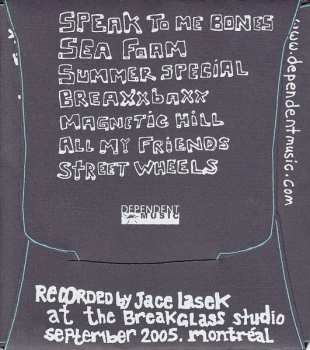 SPEAK TO ME BONES
SEA FOAM
SUMMER SPECIAL
BREAXXBAXX
MAGNETIC HILL
ALL MY FRIENDS
STREET WHEELS
www.dependentmusic.com
DEPENDENT
MUSIC
RECORDED by Jace Lasek
at the BreakGlass studio
september 2005. montréal